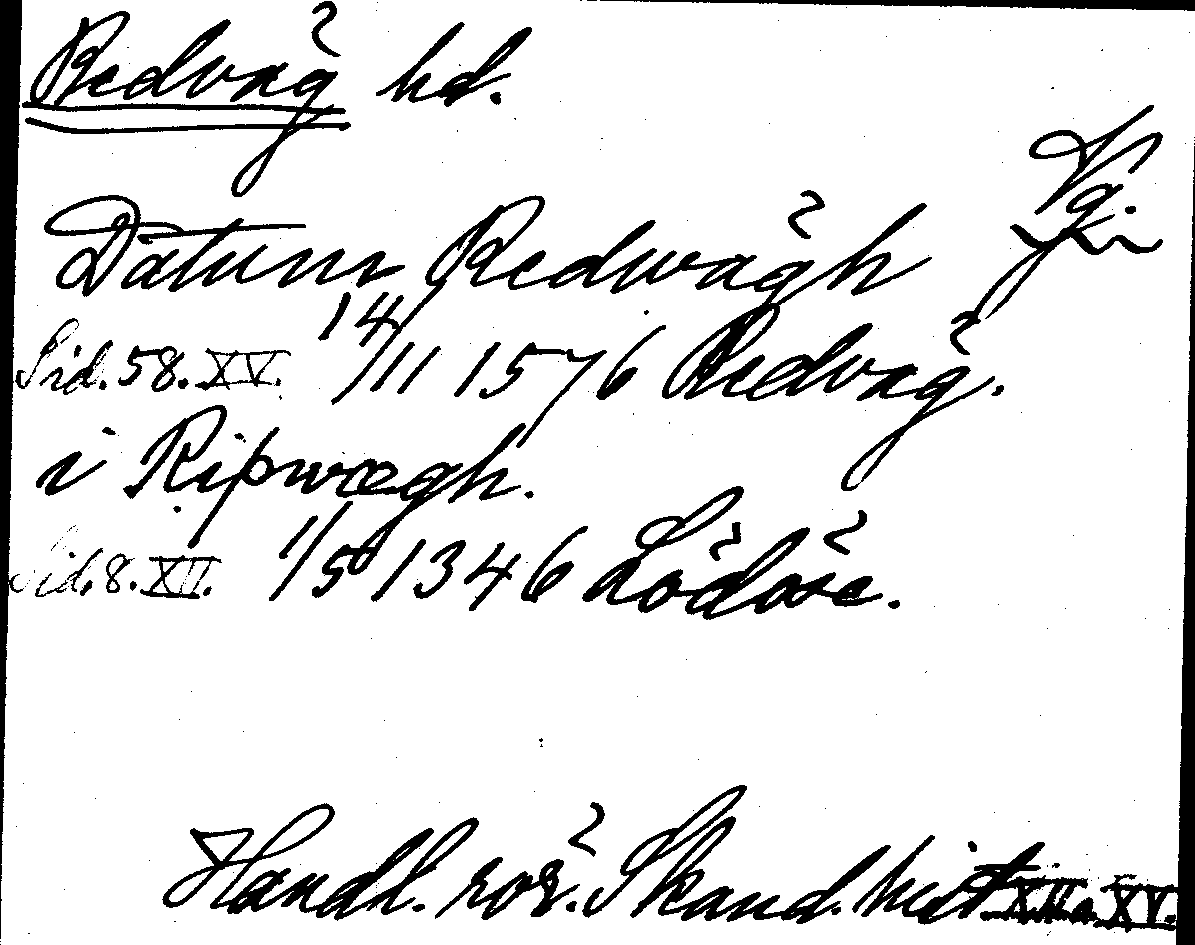 Redväg hd.
Vg.
Datum Redwägh
Sid. 58. XV. 14/11 1576 Redväg.
i Ripwægh.
Sid. 8. XII. 1/5 1346 Lödöse.
Handl. rör. Skand. hist. XII o. XV.